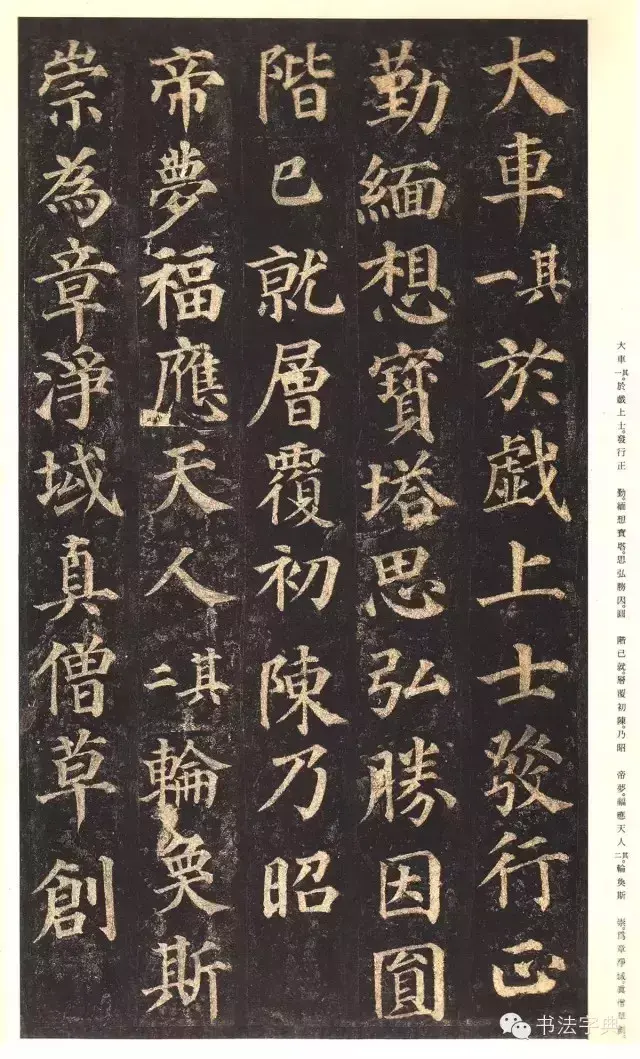 大車其一於戯上士發行正
勤緬想寶塔思弘勝因圓
階已就層覆初陳乃昭
帝夢福應天人其二輪奐斯
崇為章淨域真僧草創
大車其一。於戲上士。發行正 勤。緬想寶塔。思弘勝因。圓 階已就。層覆初陳。乃昭 帝夢。福應天人其二。輪奐斯 崇。爲章淨域。眞僧草創。
书法字典